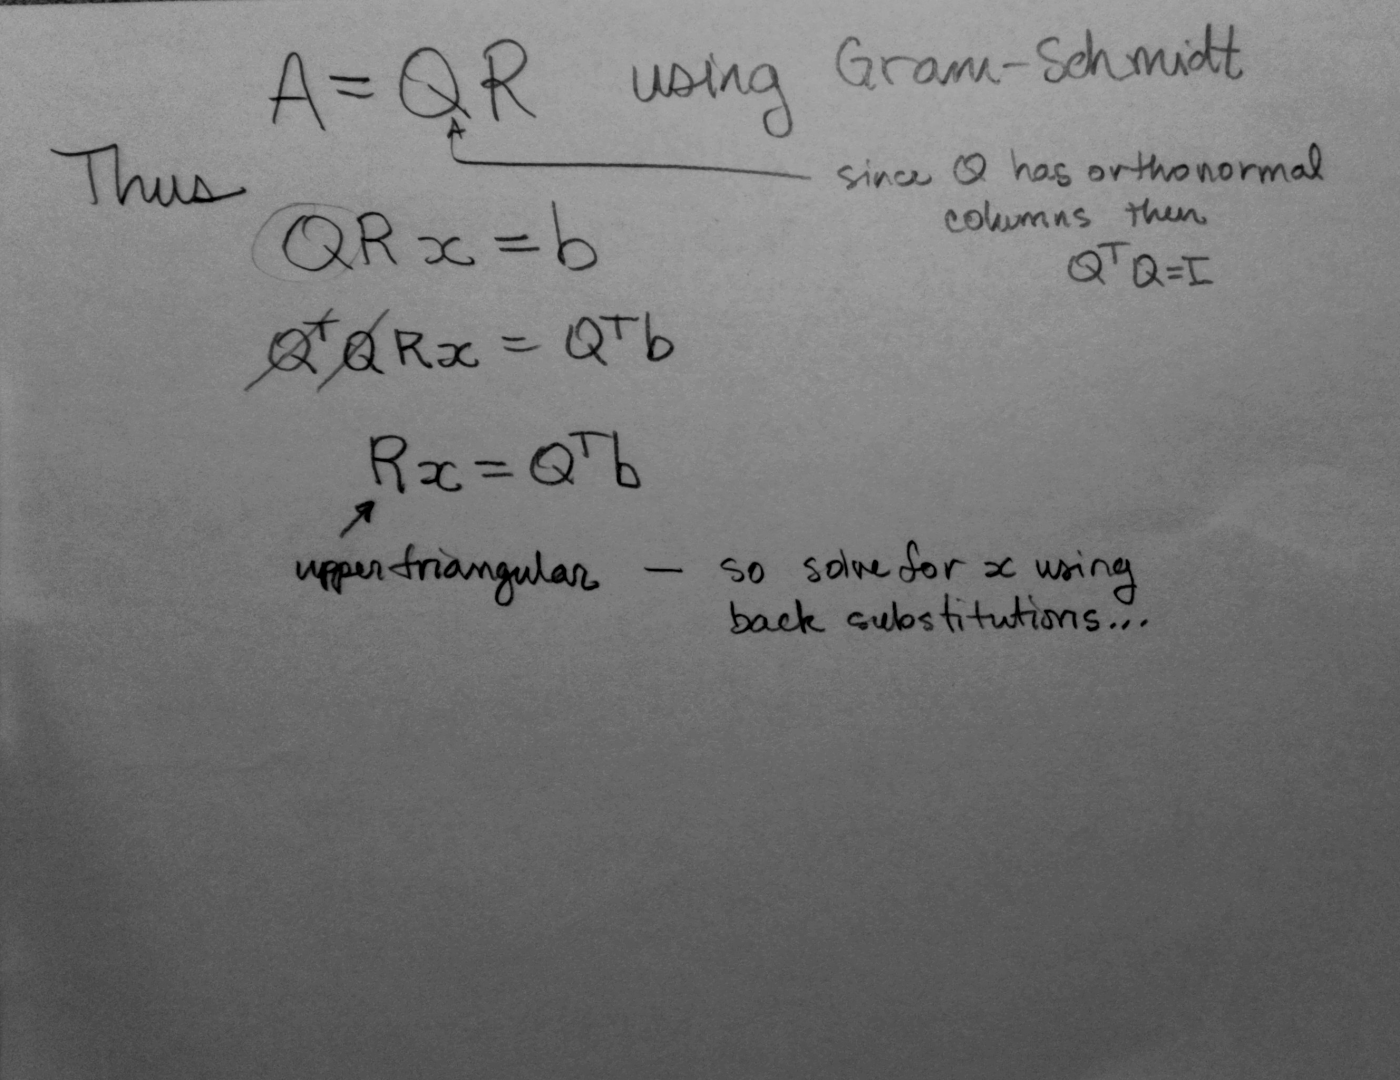 A = QR using Gram-Schmidt
Thus
since Q has orthonormal
columns then
QᵀQ=I
QRx = b
QᵀQRx = Qᵀb
Rx = Qᵀb
upper triangular — so solve for x using
back substitutions...